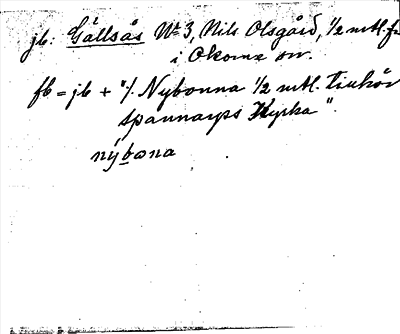 jb: Gällsås № 3, Nils Olsgård, 1/2 mtl. fr
i Okome sn.
fb = jb + "/. Nybonna 1/2 mtl.
Spannarps Kyrka".
nýbona